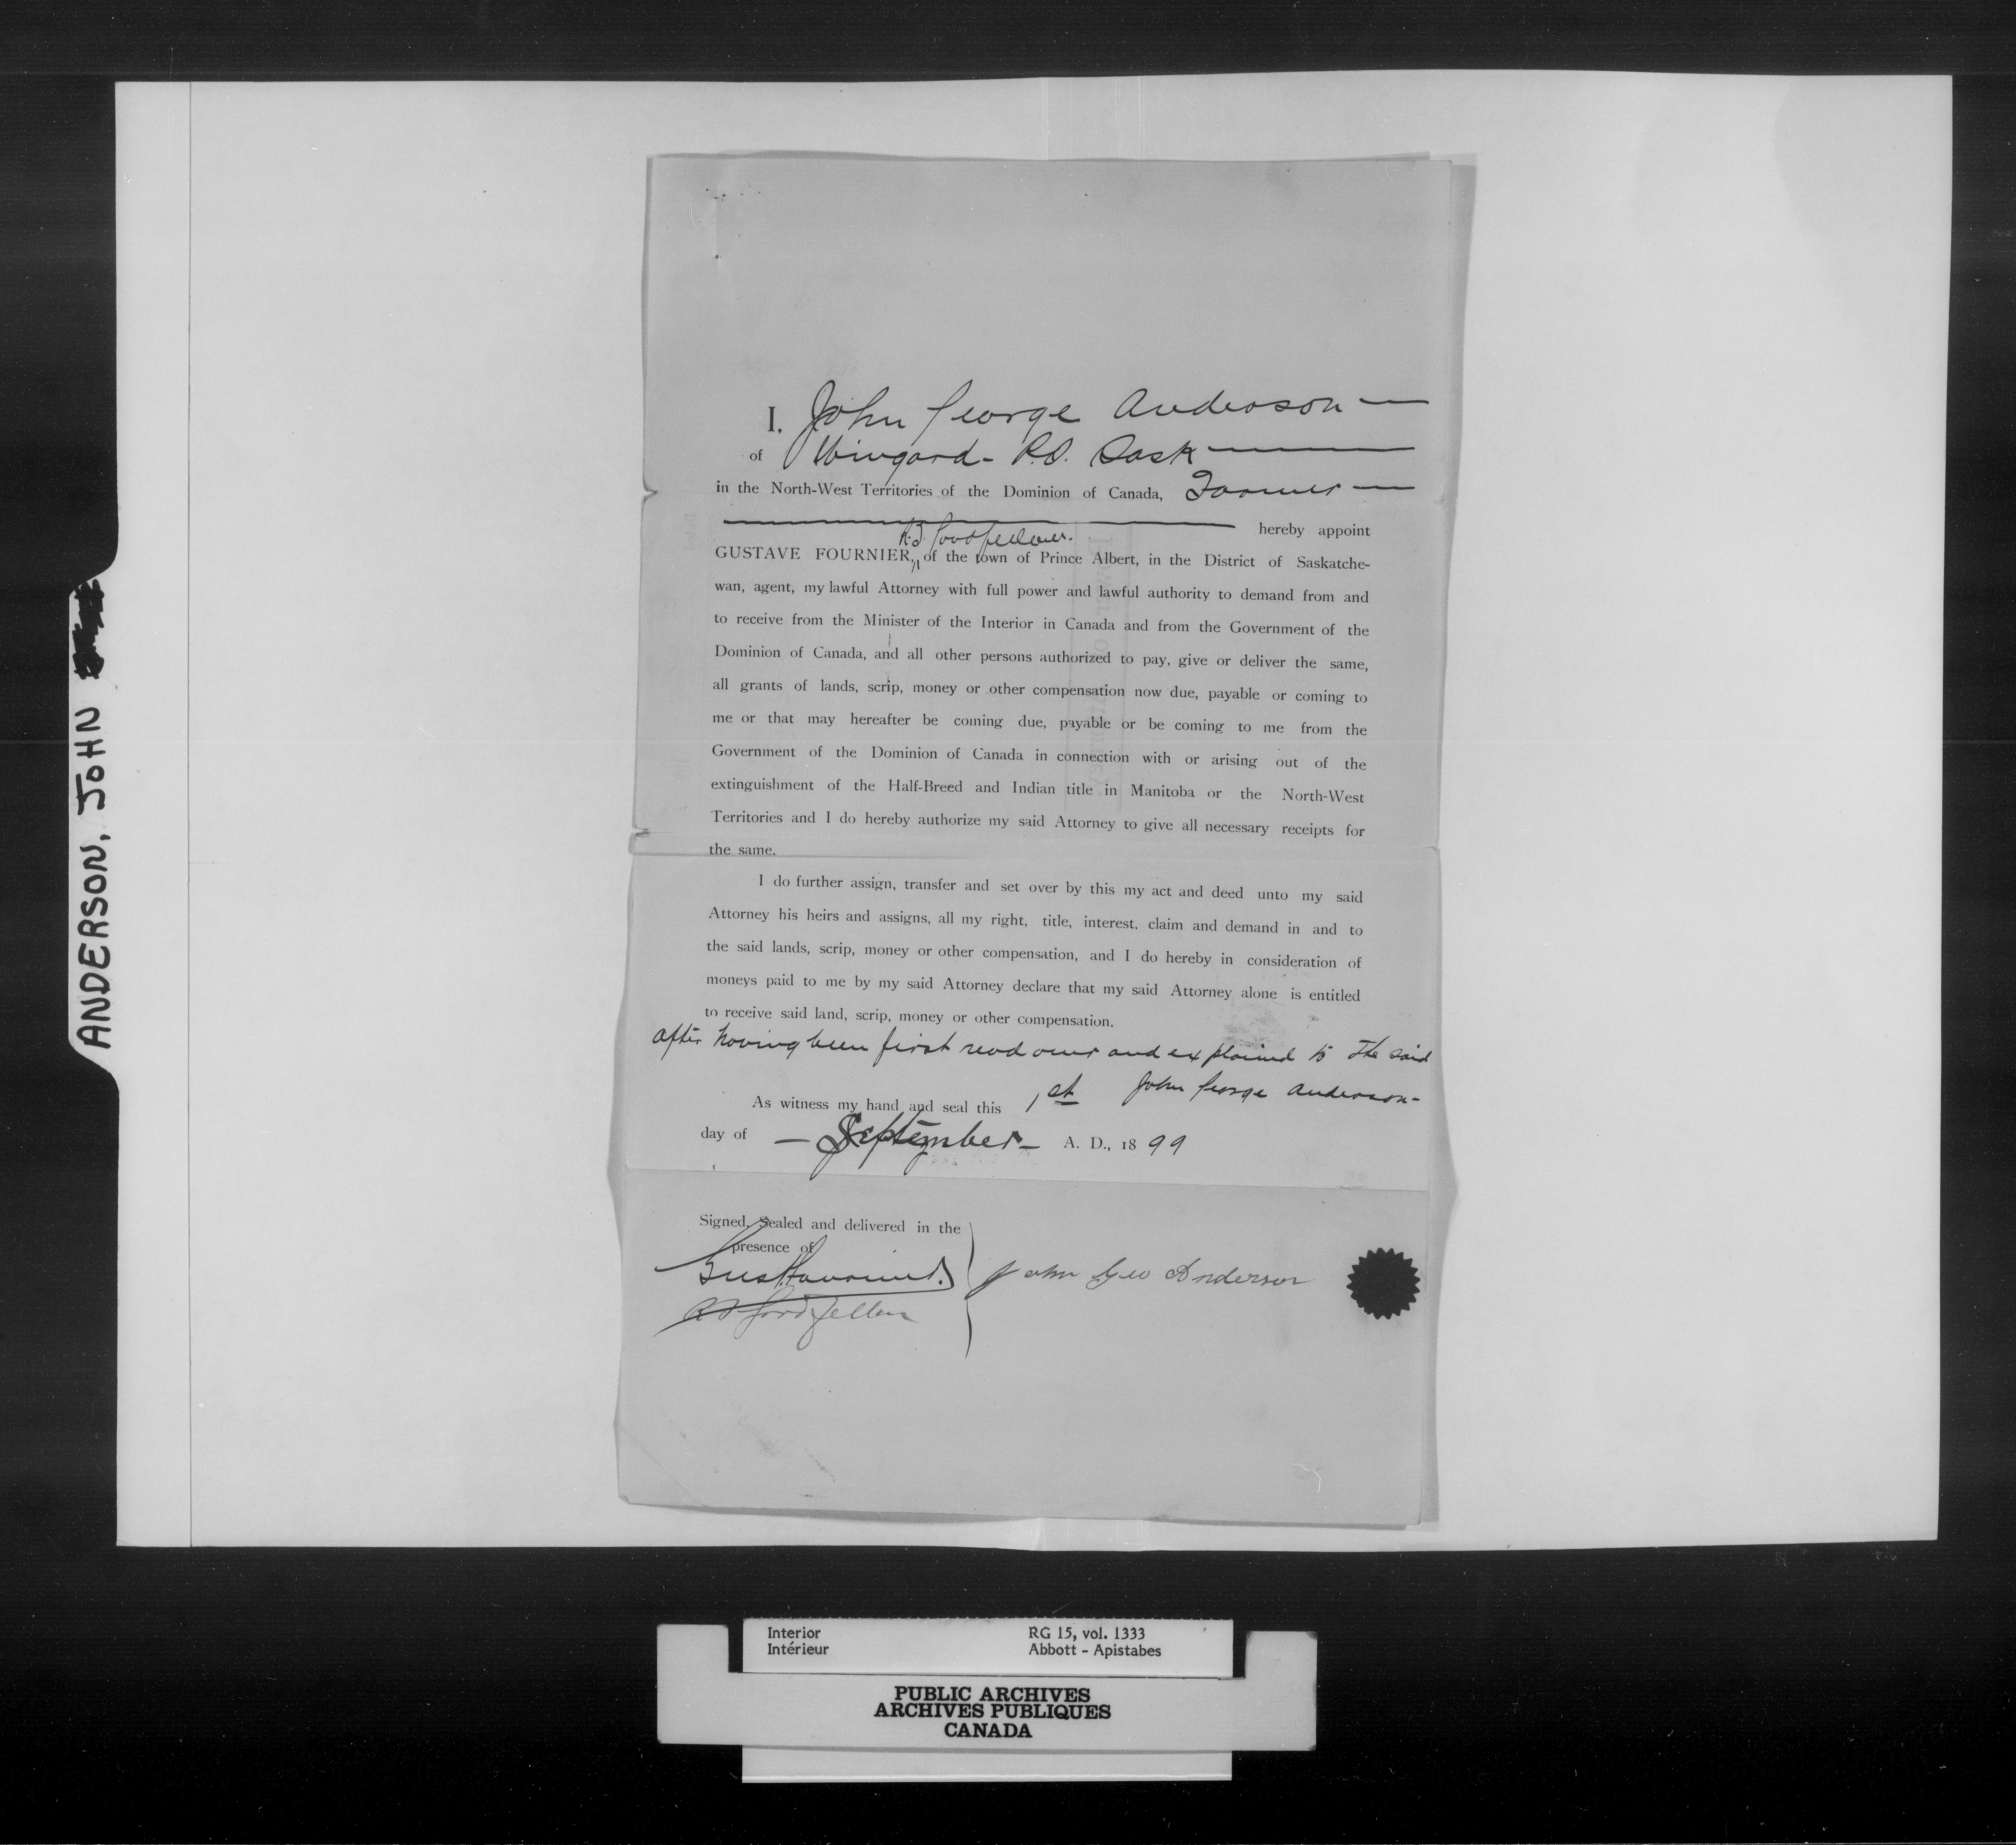 ANDERSON, JOHN
I, John George Anderson —
of Wingard - P.O. Sask —
in the North-West Territories of the Dominion of Canada, Farmer —
hereby appoint
R.J. Goodfellow.
GUSTAVE FOURNIER, of the town of Prince Albert, in the District of Saskatche-
wan, agent, my lawful Attorney with full power and lawful authority to demand from and
to receive from the Minister of the Interior in Canada and from the Government of the
Dominion of Canada, and all other persons authorized to pay, give or deliver the same,
all grants of lands, scrip, money or other compensation now due, payable or coming to
me or that may hereafter be coming due, payable or be coming to me from the
Government of the Dominion of Canada in connection with or arising out of the
extinguishment of the Half-Breed and Indian title in Manitoba or the North-West
Territories and I do hereby authorize my said Attorney to give all necessary receipts for
the same.
I do further assign, transfer and set over by this my act and deed unto my said
Attorney his heirs and assigns, all my right, title, interest, claim and demand in and to
the said lands, scrip, money or other compensation, and I do hereby in consideration of
moneys paid to me by my said Attorney declare that my said Attorney alone is entitled
to receive said land, scrip, money or other compensation.
after having been first read over and explained to the said
John George Anderson -
As witness my hand and seal this 1st
day of — September — A. D., 1899
Signed, Sealed and delivered in the
presence of
John Geo Anderson
Goodfellow
Interior RG 15, vol. 1333
Intérieur Abbott - Apistabes
PUBLIC ARCHIVES
ARCHIVES PUBLIQUES
CANADA